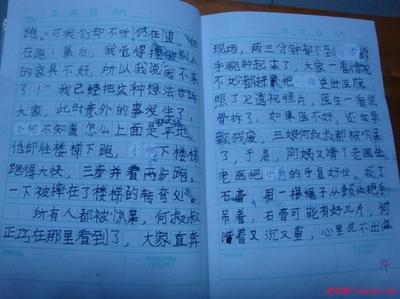 年 月 日 天气
跑。可我们却不听仍在追，仍
在跑！最后，我觉得撞坏别人
的家具不好，所以我说我不来
了！"我已经把这种想法告诉
大家，此时意外的事发生了，
小何不知置怎么上面是平地，
他却往楼梯下跑，小何下楼梯
跑得太快，三步并着两步跑，
一下被摔在了楼梯的转弯处。
所有人都被惊呆，何叔叔
正巧在那里看到了，大家直奔
现场，两三分钟都不到小何的
手腕肿起来了，大家一看情况
不妙都好
照了X透视照片，医生一看说
骨折了，如果医不好，还会导
致残废，三娘何叔叔都被吓呆
了，于是，阿姨又请了老医生
老医把小何的手复好位，敷了
石膏，用一根绳子从颈以把手
吊着，石膏可能有好几斤，何
清着又沉又重，心里说不出滋
14